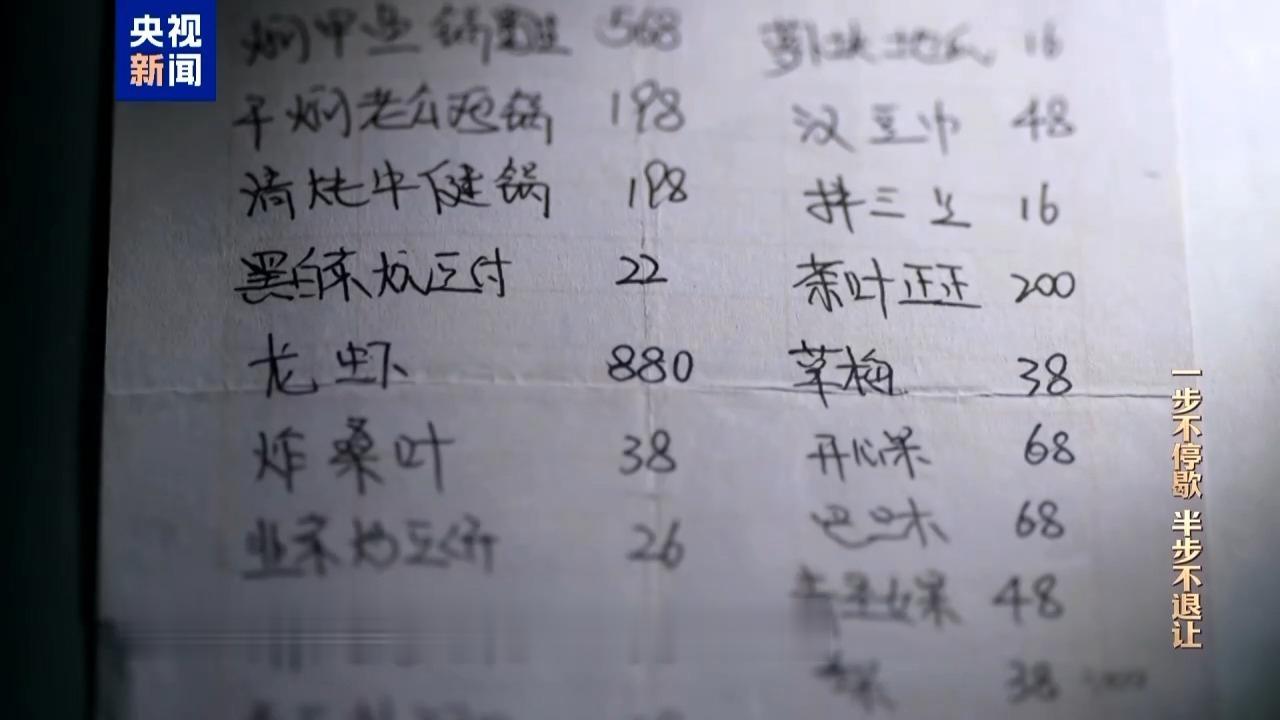 央视
新闻
焖甲鱼锅 568
干焖老公鸡锅 198
清炖牛腱锅 198
黑白菜炖豆付 22
龙虾 880
炸桑叶 38
炒豆付 26
土地瓜 16
汉豆巾 48
拌三丝 16
茶叶正正 200
草梅 38
开心果 68
巴旦木 68
48
38
一步不停歇 半步不退让